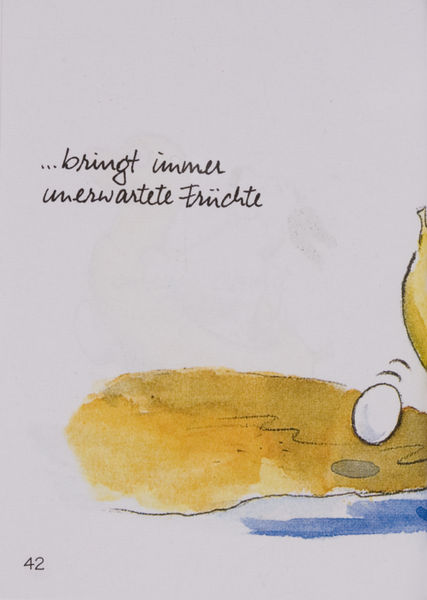 ...bringt immer
unerwartete Früchte
42